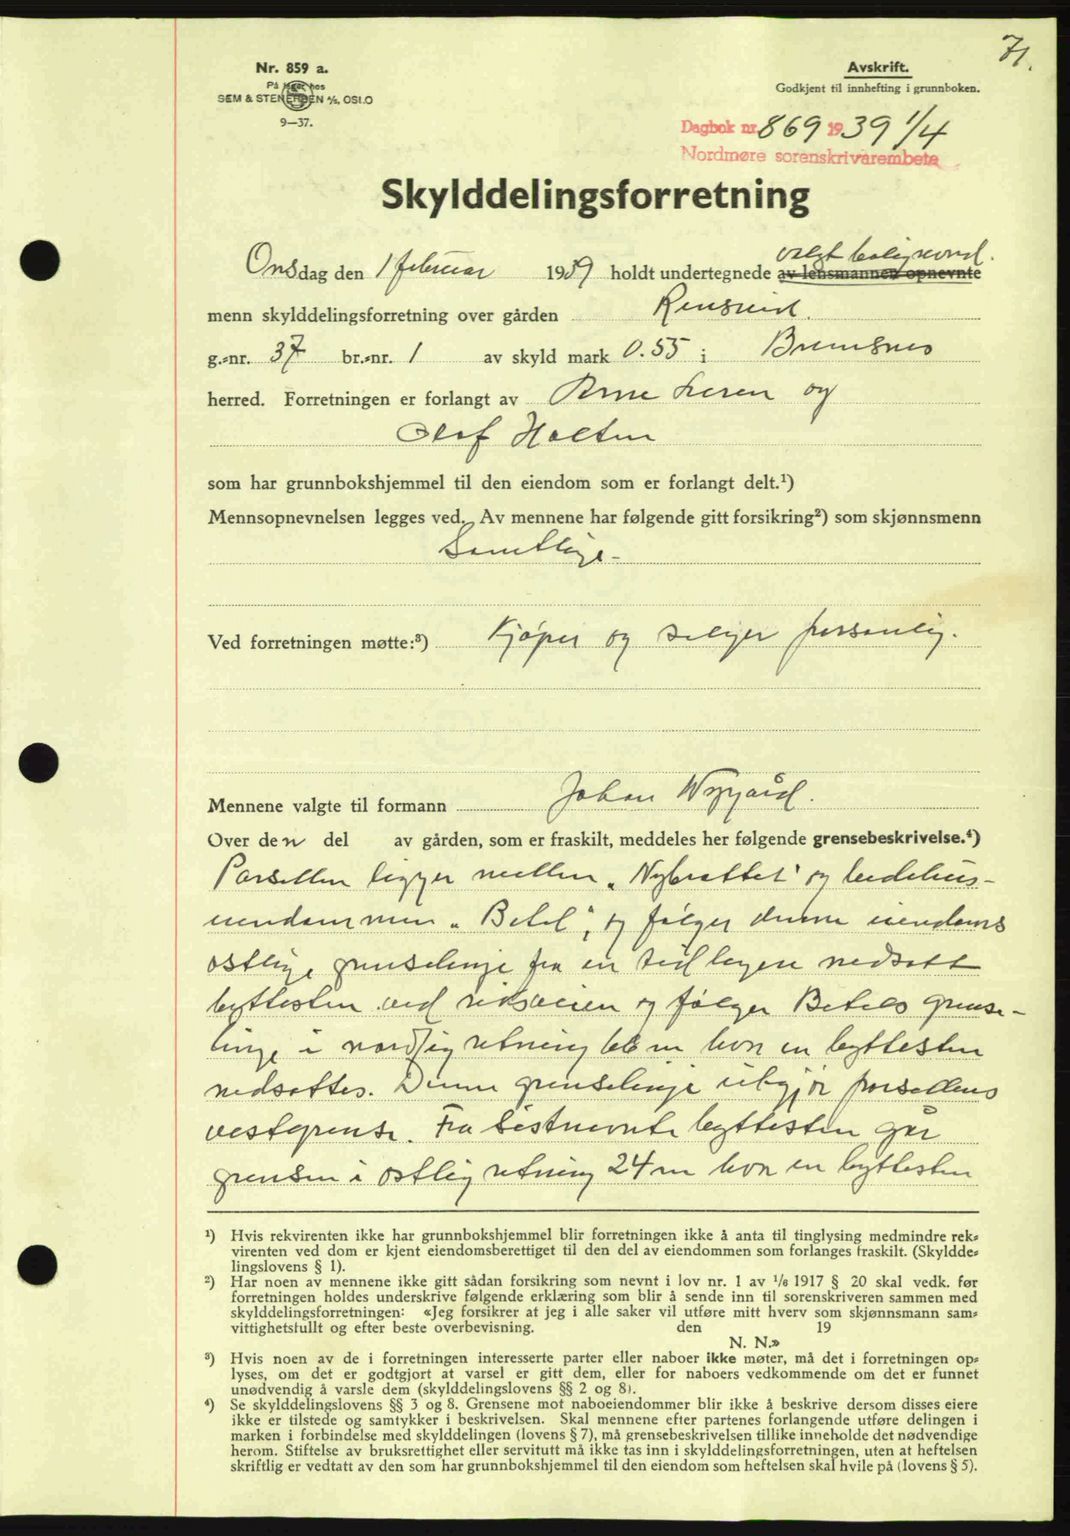 71.
Nr. 859 a.
På lager hos
SEM & STENERSEN A/S, OSLO
9—37.
Avskrift.
Godkjent til innhefting i grunnboken.
Dagbok nr. 869 1939 1/4
Nordmøre sorenskrivarembete
Skylddelingsforretning
valgt
Onsdag den 1 februar 1939 holdt undertegnede av lensmannen opnevnte
menn skylddelingsforretning over gården Rensvik.
g.=nr. 37 br.=nr. 1 av skyld mark 0.55 i Bremsnes
herred. Forretningen er forlangt av Arne Leren og
Olaf Holten
som har grunnbokshjemmel til den eiendom som er forlangt delt.¹)
Mennsopnevnelsen legges ved. Av mennene har følgende gitt forsikring²) som skjønnsmenn
Samtlige -
Ved forretningen møtte:³) Kjøper og selger personlig.
Mennene valgte til formann Johan Nygård.
Over den del av gården, som er fraskilt, meddeles her følgende grensebeskrivelse.⁴)
Parsellen ligger mellem „Nybrottet" og bedehus-
eiendommen „Betel", og følger denne eiendoms
østlige grenselinje fra en tidligere nedsatt
byttesten ved riksveien og følger Betels grense-
linje i nordlig retning 66 m hvor en byttesten
nedsattes. Denne grenselinje utgjør parsellens
vestgrense. Fra sistnevnte byttesten går
grensen i østlig retning 24 m hvor en byttesten
¹) Hvis rekvirenten ikke har grunnbokshjemmel blir forretningen ikke å anta til tinglysing medmindre rek=
virenten ved dom er kjent eiendomsberettiget til den del av eiendommen som forlanges fraskilt. (Skyldde=
lingslovens § 1).
²) Har noen av mennene ikke gitt sådan forsikring som nevnt i lov nr. 1 av 1/6 1917 § 20 skal vedk. før
forretningen holdes underskrive følgende erklæring som blir å sende inn til sorenskriveren sammen med
skylddelingsforretningen: «Jeg forsikrer at jeg i alle saker vil utføre mitt hverv som skjønnsmann sam=
vittighetsfullt og efter beste overbevisning. den 19
N. N.»
³) Hvis noen av de i forretningen interesserte parter eller naboer ikke møter, må det i forretningen op=
lyses, om det er godtgjort at varsel er gitt dem, eller for naboers vedkommende om det er funnet
unødvendig å varsle dem (skylddelingslovens §§ 2 og 8).
⁴) Se skylddelingslovens §§ 3 og 8. Grensene mot naboeiendommer blir ikke å beskrive dersom disses eiere
ikke er tilstede og samtykker i beskrivelsen. Skal mennene efter partenes forlangende utføre delingen i
marken i forbindelse med skylddelingen (lovens § 7), må grensebeskrivelsen tillike inneholde det nødvendige
herom. Stiftelse av bruksrettighet eller servitutt må ikke tas inn i skylddelingsforretningen, uten at heftelsen
skriftlig er vedtatt av den som har grunnbokshjemmel til den eiendom som heftelsen skal hvile på (lovens § 5).